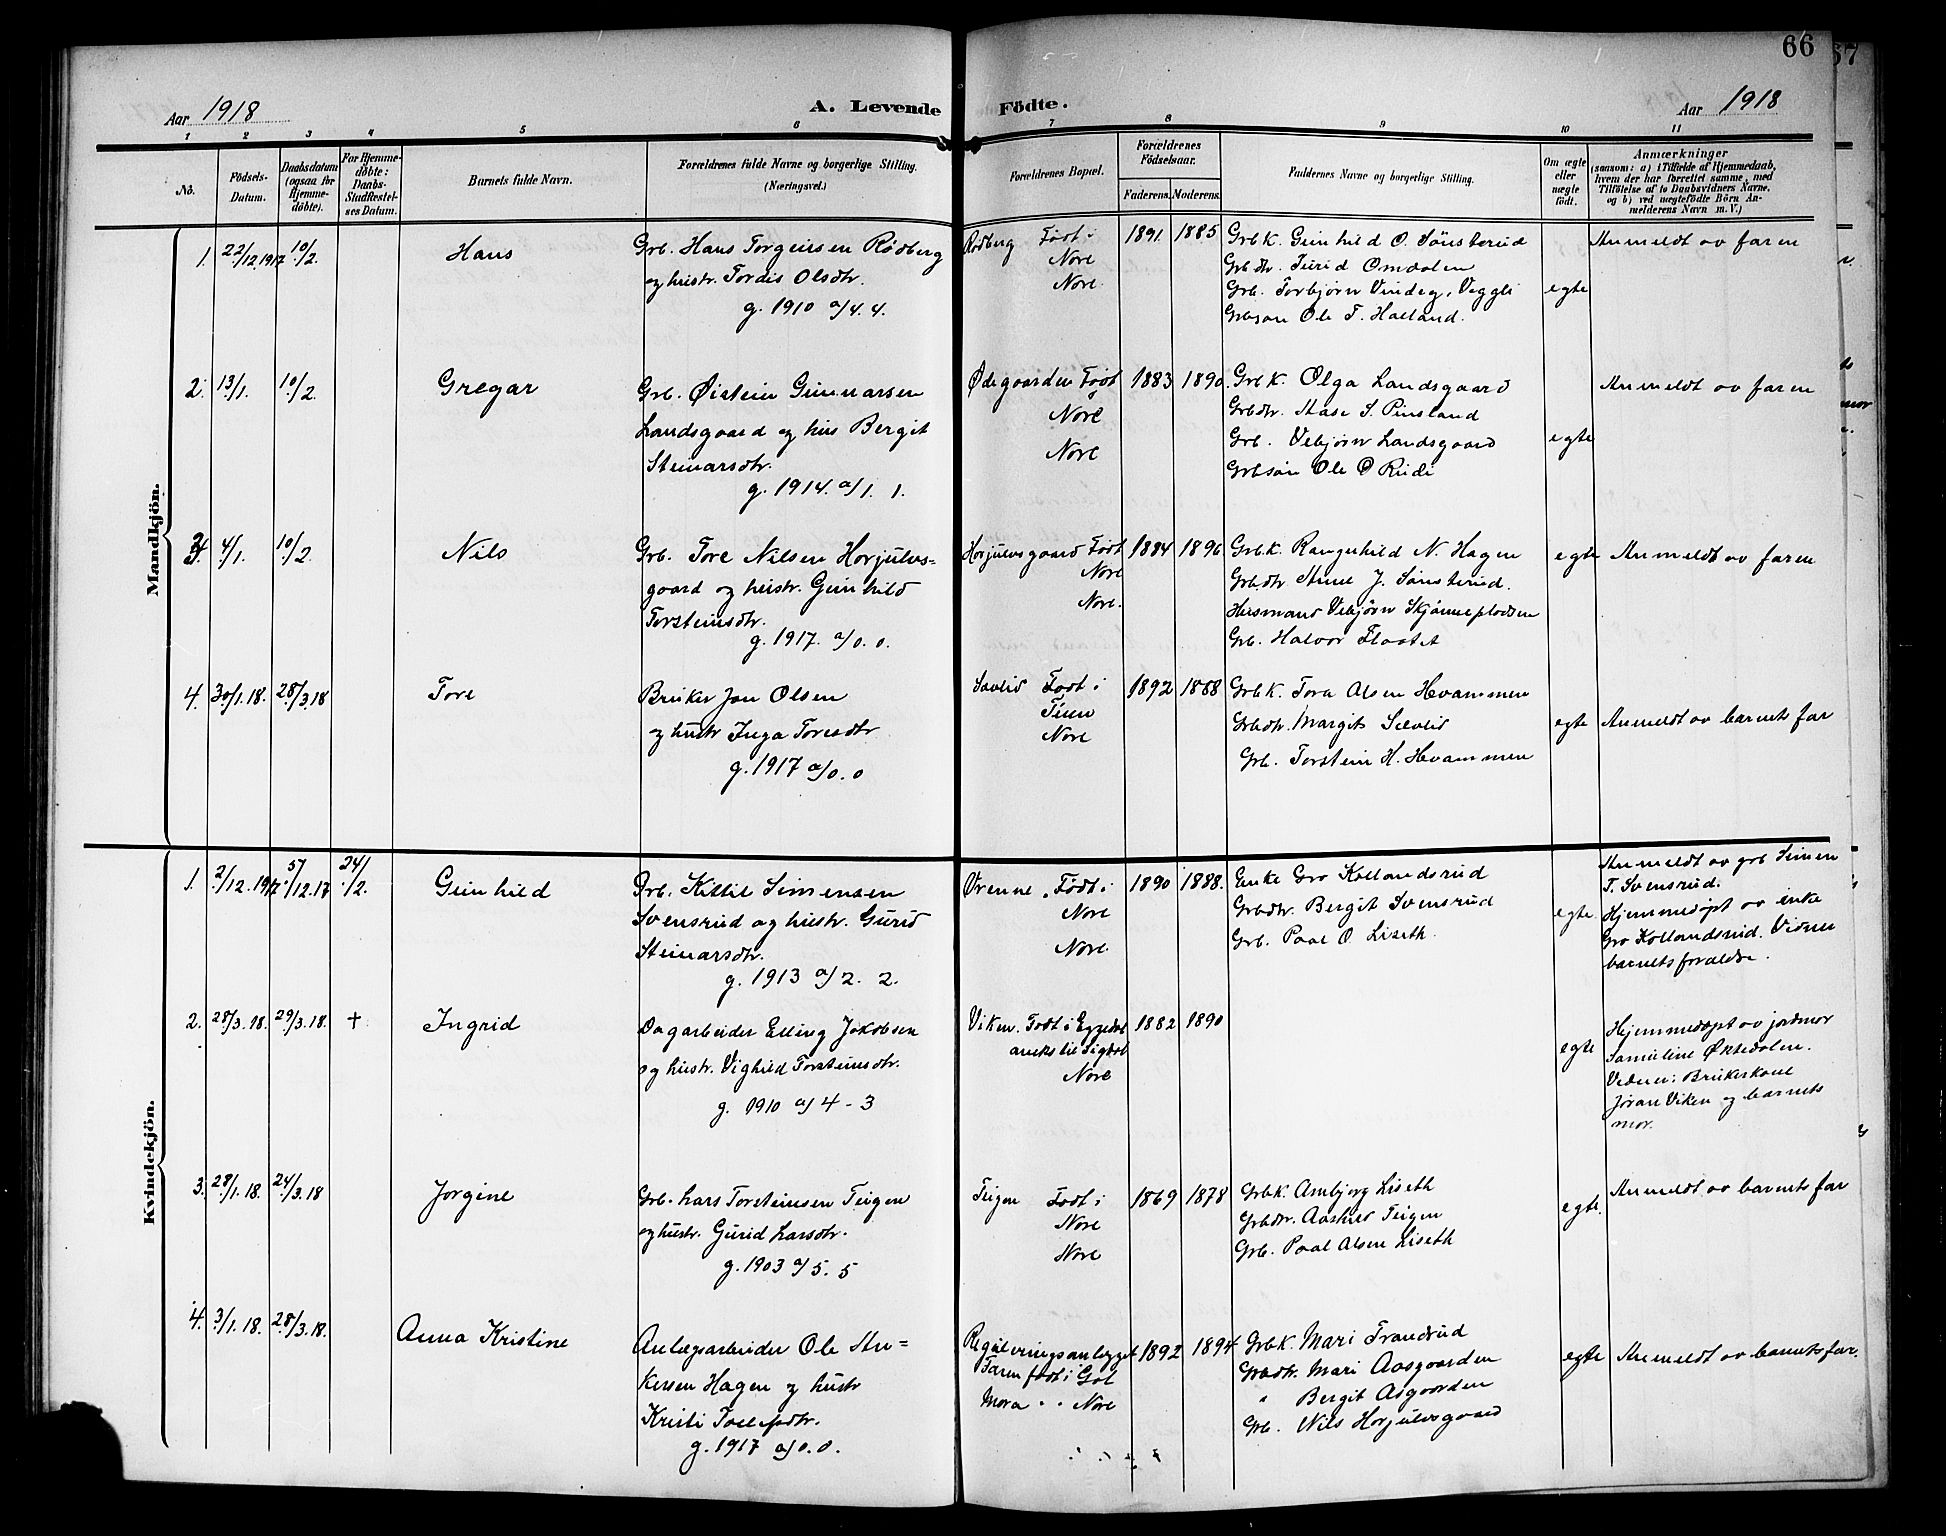 66
67
Aar 1918
A. Levende
Födte.
Aar 1918
1 2 3 4 5 6 7 8 9 10 11
No.
Födsels-
Datum.
Daabsdatum
(ogsaa for
Hjemme-
døbte).
For Hjemme-
døbte:
Daabs-
Stadfæstel-
ses Datum.
Barnets fulde Navn.
Forældrenes fulde Navne og borgerlige Stilling.
(Næringsvei.)
Forældrenes Bopæl.
Forældrenes
Födselsaar.
Faderens. Moderens.
Faddernes Navne og borgerlige Stilling.
Om ægte
eller
uægte
født.
Anmærkninger
(saasom: a) i Tilfælde af Hjemmedaab,
hvem der har forrettet samme, med
Tilföielse af to Daabsvidners Navne,
og b) ved uægtefødte Börn An-
melderens Navn m. V.)
Mandkjön.
1. 22/12.1917 10/2. Hans
Grb. Hans Torgeirsen Rødberg
og hustr. Tordis Olsdtr.
g. 1910 a/4. 4.
Rødberg Født i
Nore
Nore.
1891. 1885
Grbk. Gunhild O. Sønsterud
Grbdtr. Turid Omdalen
Grb. Torbjørn Vindeg, Veggli
Grbsøn Ole T. Haaland.
egte
Anmeldt av faren
2. 13/1. 10/2. Gregar
Grb. Øistein Gunnarsen
Landsgaard og hus Bergit
Steinarsdtr.
g. 1914. a/1. 1.
Ødegaarden Født
Nore
Nore
1883 1890.
Grbk. Olga Landsgaard
Grbdtr. Aase S. Pinsland
Grb. Vebjørn Landsgaard
Grbsøn Ole O Rudi
egte
Anmeldt av faren
3. 4/1. 10/2. Nils
Grb. Tore Nilsen Horjulvs=
gaard og hustr. Gunhild
Torsteinsdtr.
g. 1917. a/0. 0.
Horjulvsgaard Født
Nore
Nore.
1884 1896
Grbk. Rangnhild N. Hagen
Grbdtr Anne J. Sønsterud.
Husmand Vebjørn Skjønneplodsen
Grb. Halvor Flaatet
egte
Anmeldt av faren
4. 30/1. 18. 28/3.18 Tore
Bruker Jon Olsen
og hustr Inga Toresdtr
g. 1917 a/0. 0
Sævlid Født i
Tinn
Nore
1892 1888
Grbk. Tora Olsen Hvammen
Grbdtr. Margit Sævlid
Grb. Torstein H. Hvammen
egte
Anmeldt av barnets far
Kvindekjön.
1. 2/12. 1917 5/12.17 24/2. Gunhild
Grb. Kittil Simensen
Svensrud og hustr. Gurid
Steinarsdtr.
g. 1913 a/2. 2.
Vrenne. Født i
Nore
Nore
1890 1888.
Enke Gro Kollandsrud
Grbdtr. Bergit Svensrud
Grb. Paal O. Liseth.
egte.
Anmeldt av grb Simen
T. Svensrud.
Hjemmedøpt av enke
Gro Kollandsrud. Vidner
barnets foraldre.
2. 28/3. 18. 29/3.18. † Ingrid
Dagarbeider Elling Jakobsen
og hustr. Vighild Torsteinsdtr.
g. 1910 a/4 - 3
Viken. Født i Eggedal
aneks til Sigdal
Nore
1882 1890
egte
Hjemmedøpt av jordmor
Samueline Øktedalen.
Vidner: Brukerkone
Jøran Viken og barnets
mor.
3. 28/1. 18. 24/3.18 Jorgine
Grb. Lars Torsteinsen Teigen
og hustr. Gurid Larsdtr.
g. 1903 a/5. 5
Teigen Født i
Nore
Nore
1869 1878
Grbk. Ambjørg Liseth
Grbdtr. Aashild Teigen
Grb. Paal Olsen Liseth
egte.
Anmeldt av barnets far
4. 3/1. 18. 28/3.18. Anna Kristine
Anlægsarbeider Ole An=
kersen Hagen og hustr
Kristi Tollefsdtr.
g. 1917 a/0. 0.
Reguleringsanlegget
Faren født i Gol
Mora " " Nore
1892 1894
Grbk. Mari Frandrud
Grbdtr. Mari Aasgaarden
" Bergit Asgaarden
Grb. Nils Horjulvsgaard
egte
Anmeldt av barnets far.